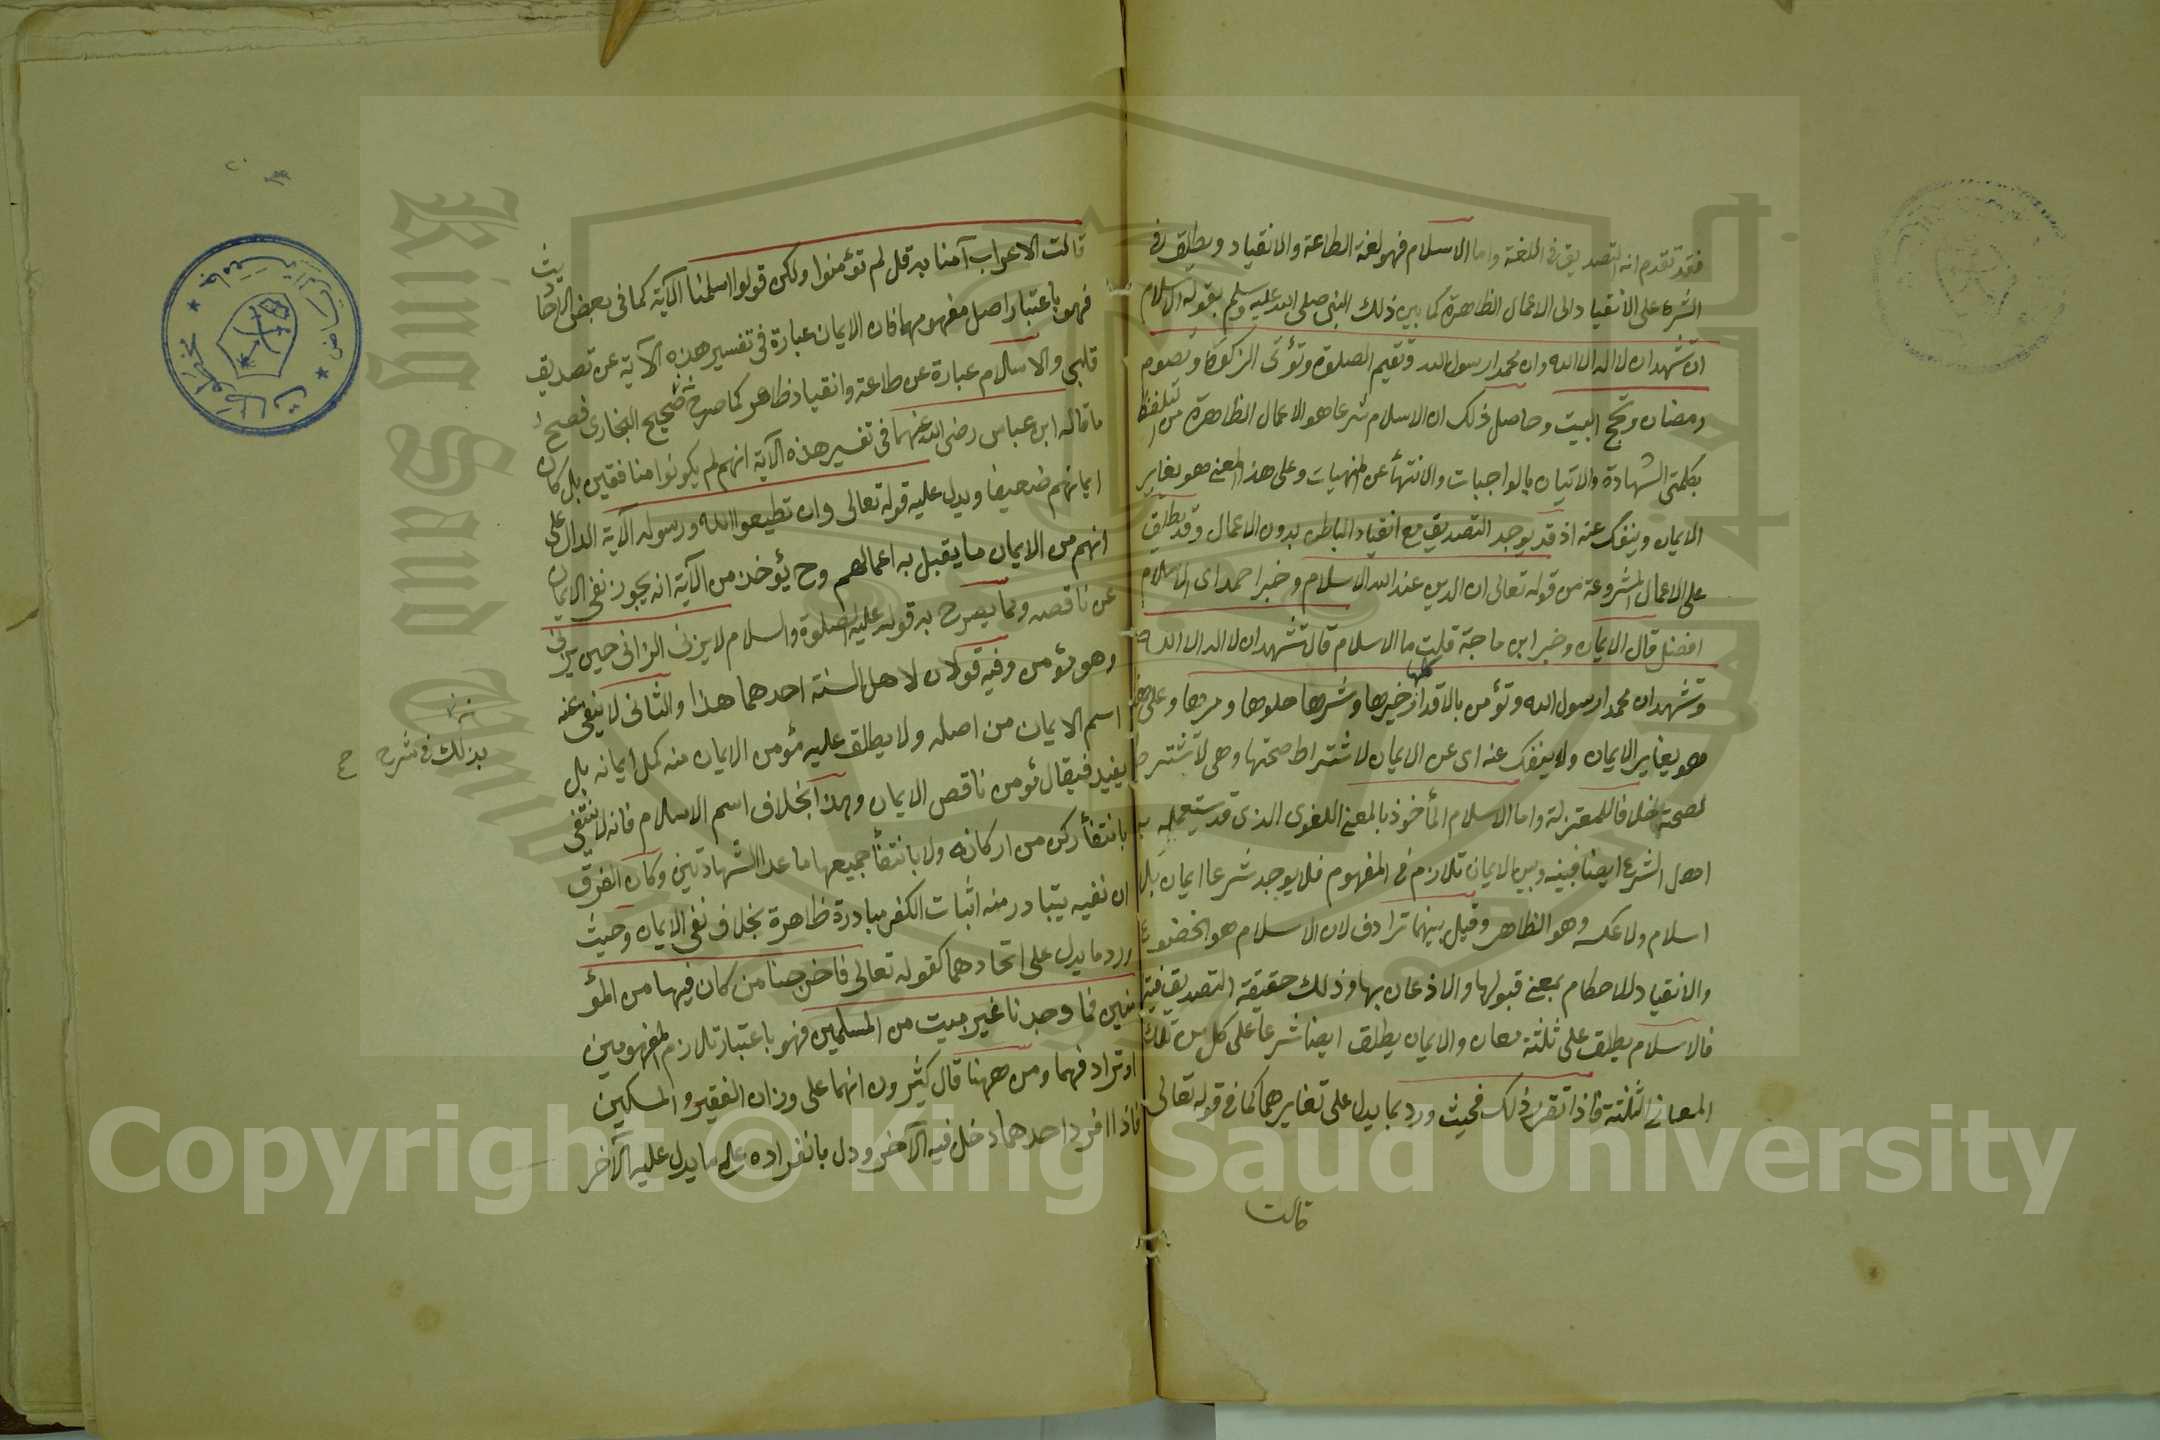 فقد تقدم انه التصديق في اللغة واما الاسلام فهو لغة الطاعة والانقياد ويطلق في
الشرع على الانقياد الى الاعمال الظاهرة كما بين ذلك النبي صلى الله عليه وسلم بقوله الاسلام
ان تشهد ان لا اله الا الله وان محمدا رسول الله وتقيم الصلوة وتؤتى الزكوة وتصوم
رمضان وتحج البيت وحاصل ذلك ان الاسلام شرعا هو الاعمال الظاهرة من التلفظ
بكلمتي الشهادة والاتيان بالواجبات والانتهاء عن المنهيات وعلى هذا المعنى هو يغاير
الايمان وينفك عنه اذ قد يوجد التصديق مع انقياد الباطن بدون الاعمال وقد يطلق
على الاعمال المشروعة من قوله تعالى ان الدين عند الله الاسلام وخبر احمد اى الاسلام
افضل قال الايمان وخبر ابن ماجة قلت ما الاسلام قال تشهد ان لا اله الا الله
وتشهد ان محمدا رسول الله وتؤمن بالاقدار كلها خيرها وشرها حلوها ومرها وعلى هذا
هو يغاير الايمان ولا ينفك عنه اى عن الايمان لاشتراط صحتها وهى لا تشترط
لصحته خلافا للمعتزلة واما الاسلام المأخوذ بالمعنى اللغوى الذى قد يستعمله به
اهل الشرع ايضا فبينه وبين الايمان تلازم في المفهوم فلا يوجد شرعا ايمان بلا
اسلام ولا عكسه وهو الظاهر وقيل بينهما ترادف لان الاسلام هو الخضوع
والانقياد للاحكام بمعنى قبولها والاذعان بها وذلك حقيقة التصديق فيه
فالاسلام يطلق على ثلثة معان والايمان يطلق ايضا شرعا على كل من تلك
المعانى الثلثة فاذا تقرر ذلك فحيث ورد بما يدل على تغايرهما كما في قوله تعالى
قالت
قالت الاعراب آمنا به قل لم تؤمنوا ولكن قولوا اسلمنا الآية كما فى بعض الاحاديث
فهو باعتبار اصل مفهومهما فان الايمان عبارة فى تفسير هذه الآية عن تصديق
قلبى والاسلام عبارة عن طاعة وانقياد ظاهر كما صرح في صحيح البخارى فصح
ما قاله ابن عباس رضى الله عنهما فى تفسير هذه الآية انهم لم يكونوا منافقين بل كان
ايمانهم ضعيفا ويدل عليه قوله تعالى وان تطيعوا الله ورسوله الآية الدال على
انهم من الايمان ما يقبل به اعمالهم وح يؤخذ من الآية انه يجوز نفى الايمان
عن ناقصه ومما يصرح به قوله عليه الصلوة والسلام لا يزنى الزانى حين يزنى
وهو مؤمن وفيه قولان لاهل السنة احدهما هذا والثانى لا ينفى عنه
اسم الايمان من اصله ولا يطلق عليه مؤمن الايمان منه كمل ايمانه بل
يقيد فيقال مؤمن ناقص الايمان وهذا بخلاف اسم الاسلام فانه لا ينتفى
بانتفاء ركن من اركانه ولا بانتفاء جميعها ما عدا الشهادتين وكان الفرق
ان نفيه يتبادر منه اثبات الكفر مبادرة ظاهرة بخلاف نفى الايمان وحيث
ورد ما يدل على اتحادهما كقوله تعالى فاخرجنا من كان فيها من المؤ
منين فما وجدنا غير بيت من المسلمين فهو باعتبار تلازم المفهومين
او ترادفهما ومن ههنا قال كثيرون انهما على وزان الفقير والمسكين
فاذا افرد احدهما دخل فيه الآخر ودل بانفراده على ما يدل عليه الآخر
بذلك فى شرح
King Saud University
Copyright © King Saud University